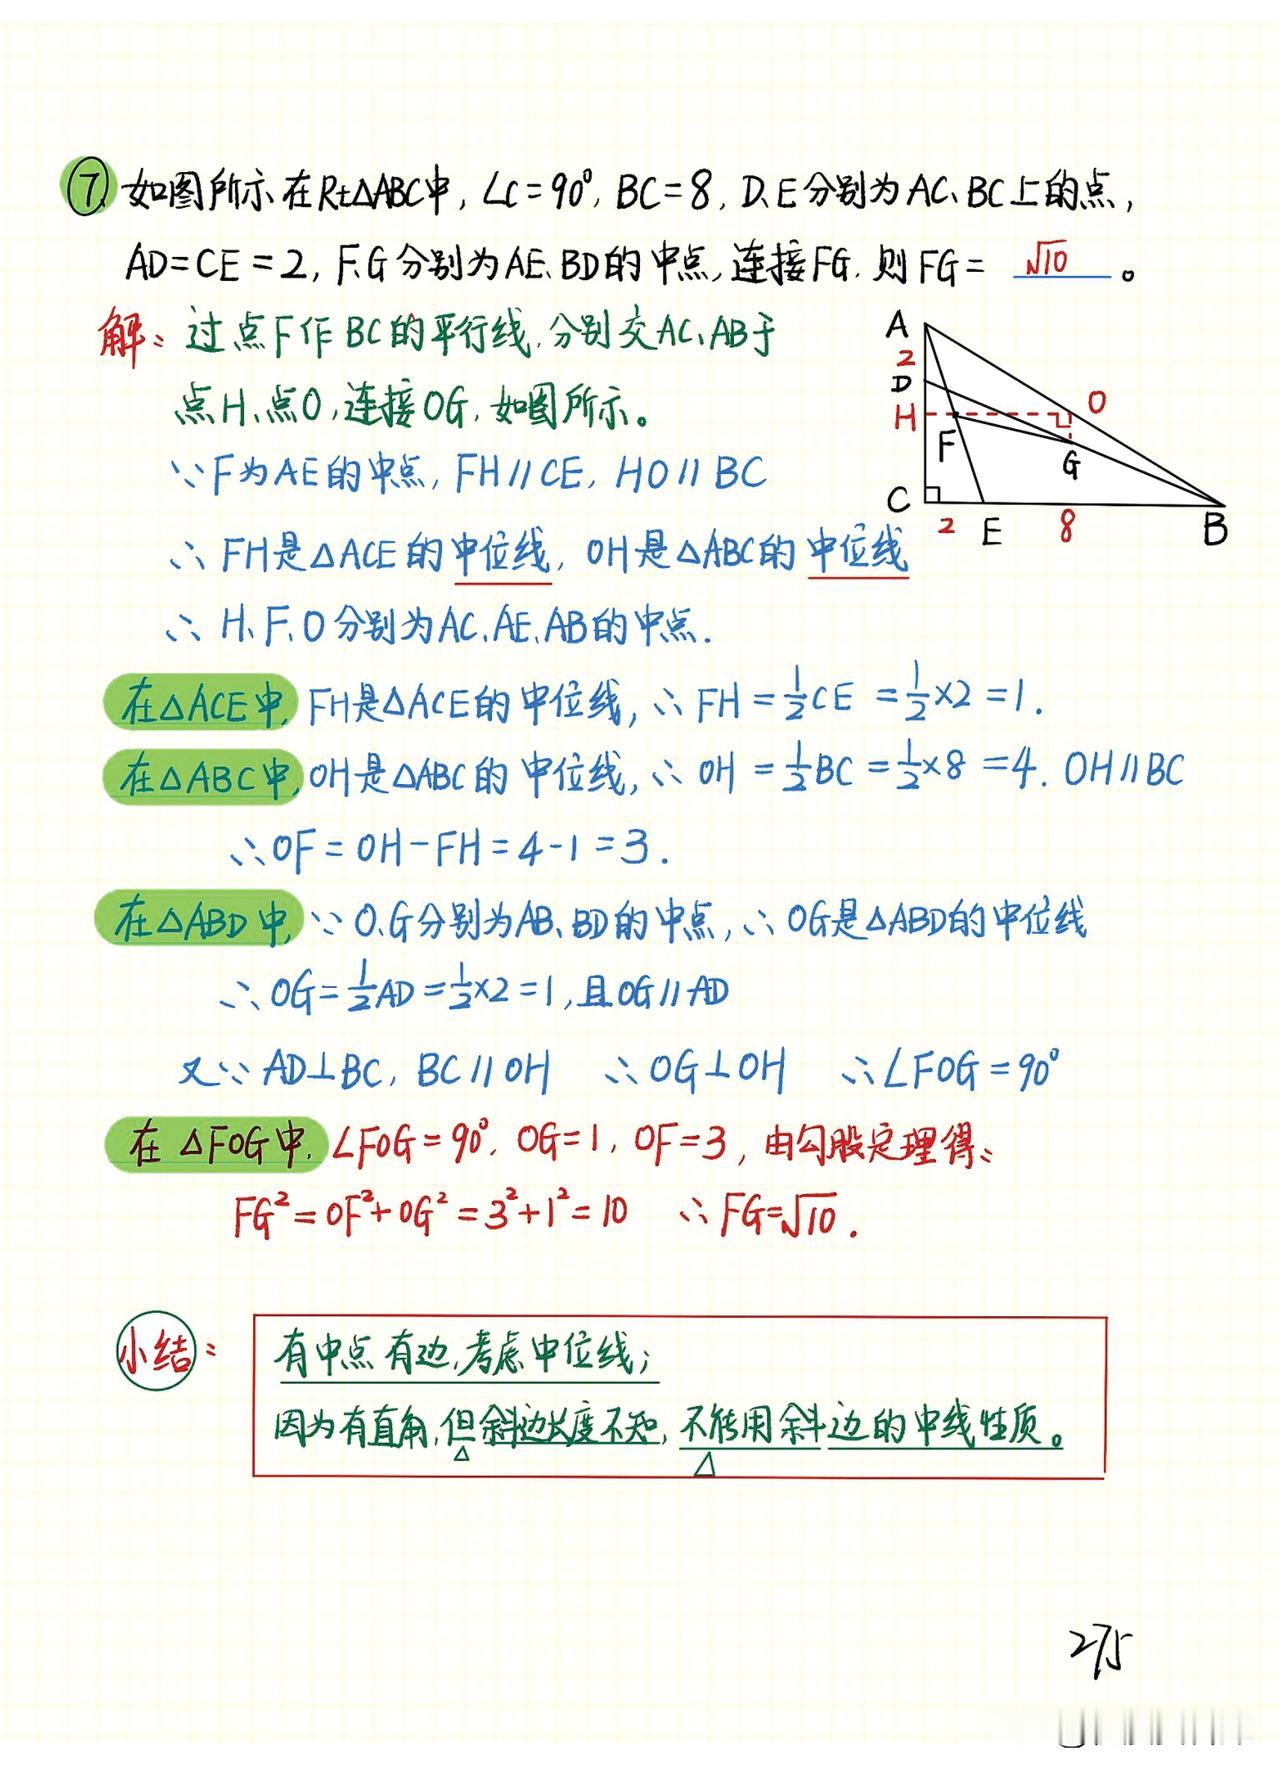 ⑦ 如图所示在Rt△ABC中,∠C=90°,BC=8,D、E分别为AC、BC上的点,
AD=CE=2,F、G分别为AE、BD的中点,连接FG.则FG= √10 。
解: 过点F作BC的平行线,分别交AC、AB于
点H、点O,连接OG,如图所示。
∵F为AE的中点,FH∥CE,HO∥BC
∴ FH是△ACE的中位线,OH是△ABC的中位线
∴ H、F、O分别为AC、AE、AB的中点.
在△ACE中,FH是△ACE的中位线,∴FH=1/2CE=1/2×2=1.
在△ABC中,OH是△ABC的中位线,∴OH=1/2BC=1/2×8=4.OH∥BC
∴OF=OH-FH=4-1=3.
在△ABD中,∵O、G分别为AB、BD的中点,∴OG是△ABD的中位线
∴OG=1/2AD=1/2×2=1,且OG∥AD
又∵AD⊥BC,BC∥OH ∴OG⊥OH ∴∠FOG=90°
在△FOG中,∠FOG=90°,OG=1,OF=3,由勾股定理得:
FG²=OF²+OG²=3²+1²=10 ∴FG=√10.
A
2
D
H
O
F
G
C
2
E
8
B
小结: 有中点有边,考虑中位线;
因为有直角,但斜边长度不知,不能用斜边的中线性质。
275